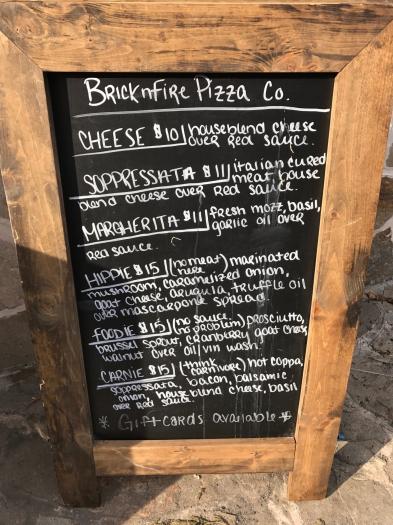 BRICKnFIRE PIZZA CO.
CHEESE $10 houseblend cheese
over Red sauce.
SOPPRESSATA $11 italian cured
meat, house
blend cheese over Red sauce.
MARGHERITA $11 fresh mozz, basil,
garlic oil over
Red sauce.
HIPPIE $15 (no meat) marinated
here
mushroom, caramelized onion,
goat cheese, arugula truffle oil
over mascarpone spread.
FOODIE $15 (no sauce prosciutto,
no problem)
brussel sprout, cranberry goat cheese,
walnut over oil/vin wash.
CARNIE $15 (think hot coppa,
carnivore)
soppressata, bacon, balsamic
onion, house blend cheese, basil
over Red sauce.
* Giftcards available *